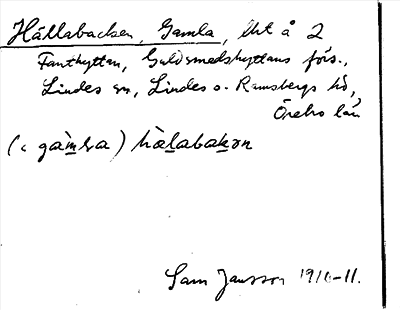 Hällabacken, Gamla, lht å 2
Fanthyttan, Guldsmedshyttans förs.,
Lindes sn, Lindes o. Ramsbergs hd,
Örebro län
(c gàmla) hàlabakən
Sam Jansson 1910-11.